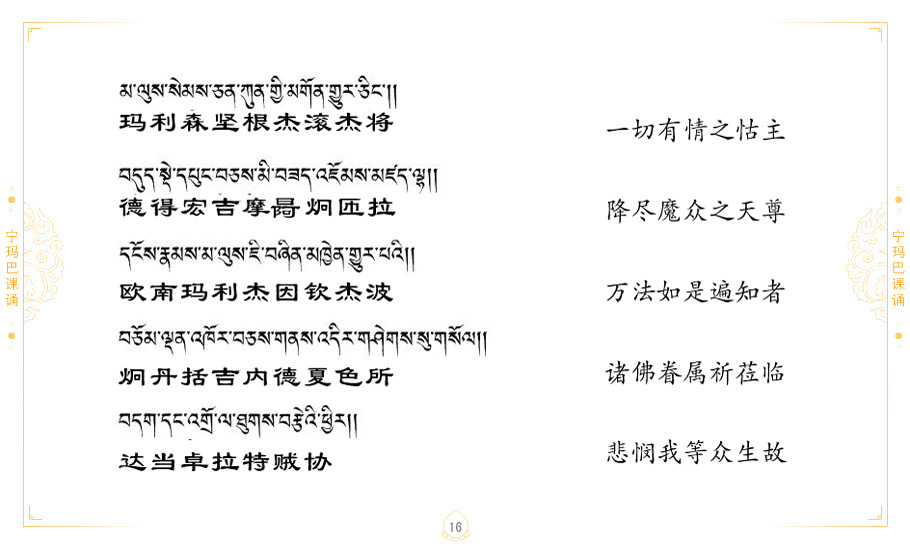 མ་ལུས་སེམས་ཅན་ཀུན་གྱི་མགོན་གྱུར་ཅིང་།།
玛利森坚根杰滚杰将
一切有情之怙主
བདུད་སྡེ་དཔུང་བཅས་མི་བཟད་འཇོམས་མཛད་ལྷ།།
德得宏吉摩晷炯匝拉
降尽魔众之天尊
དངོས་རྣམས་མ་ལུས་ཇི་བཞིན་མཁྱེན་གྱུར་པའི།།
欧南玛利杰因钦杰波
万法如是遍知者
བཅོམ་ལྡན་འཁོར་བཅས་གནས་འདིར་གཤེགས་སུ་གསོལ།།
炯丹括吉内德夏色所
诸佛眷属祈莅临
བདག་དང་འགྲོ་ལ་ཐུགས་བརྩེའི་ཕྱིར།།
达当卓拉特贼协
悲悯我等众生故
宁玛巴课诵
宁玛巴课诵
16